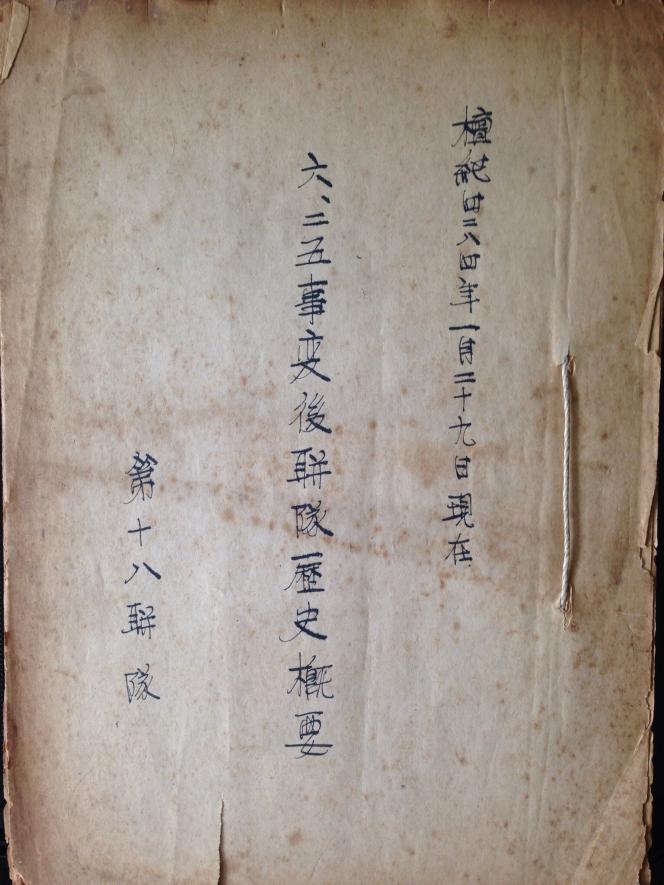 檀紀四二八四年一月二十九日現在
六、二五事変後聯隊歷史概要
第十八聯隊